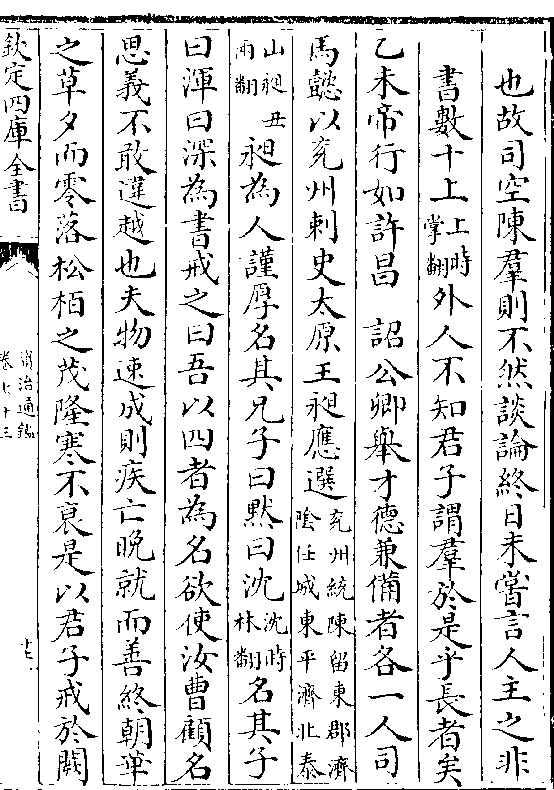 也故司空陳羣則不然談論終日未嘗言人主之非
書數十上上時掌翻外人不知君子謂羣於是乎長者矣
乙未帝行如許昌 詔公卿舉才德兼備者各一人司
馬懿以兖州刺史太原王昶應選兖州統陳留東郡濟陰任城東平濟北泰
山昶丑兩翻昶為人謹厚名其兄子曰默曰沈沈時林翻名其子
曰渾曰深為書戒之曰吾以四者為名欲使汝曹顧名
思義不敢違越也夫物速成則疾亡晚就而善終朝華
之草夕而零落松栢之茂隆寒不衰是以君子戒於闕
欽定四庫全書
資治通鑑
卷七十三